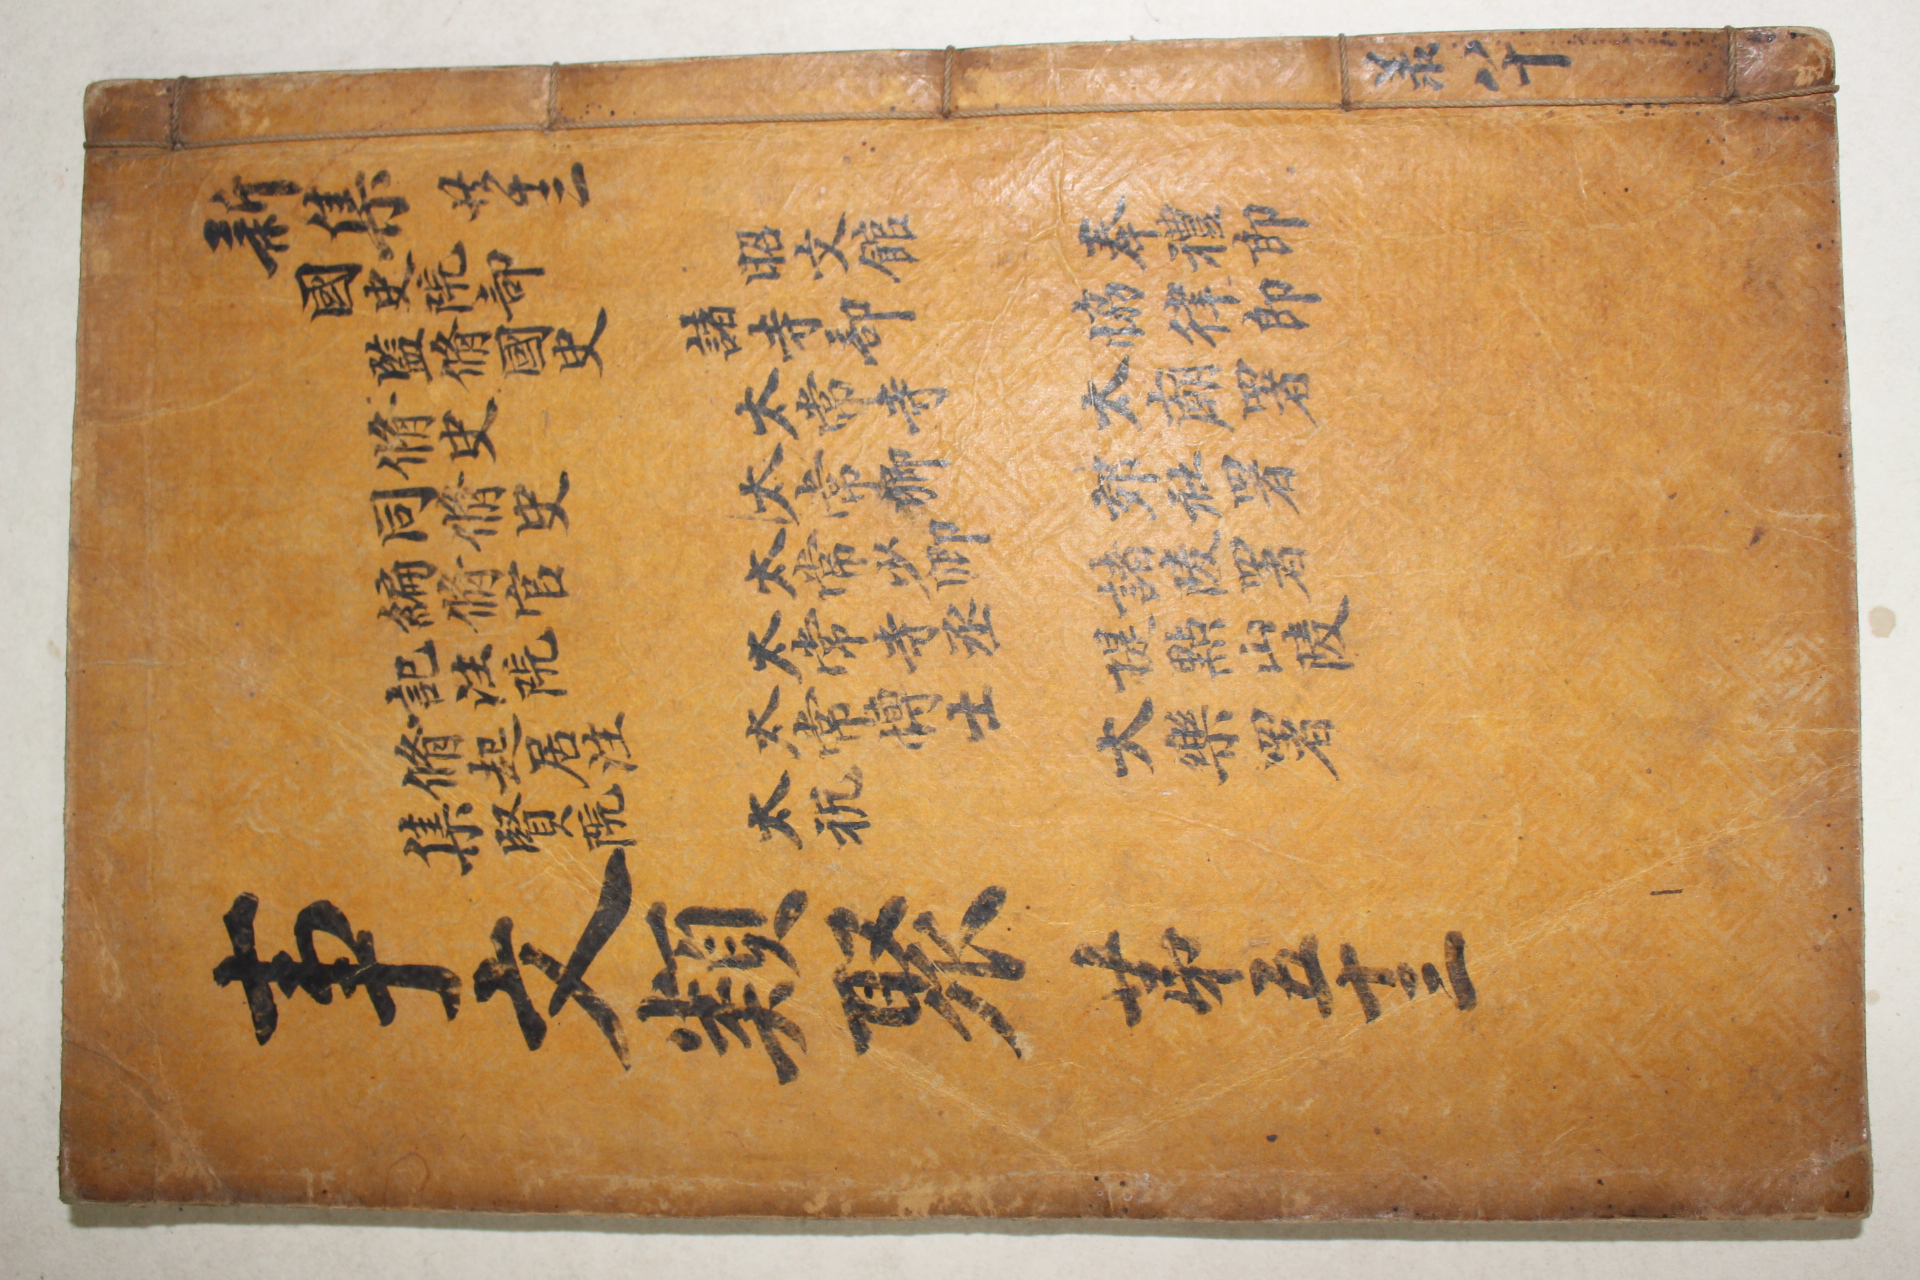 新集 共十三
國史院部
監脩國史
脩史
同脩史
編脩官
記注院
脩起居注
集賢院
昭文館
諸寺部
太常寺
太常卿
太常少卿
太常寺丞
太常博士
太祝
奉禮郎
協律郎
太廟署
郊社署
諸陵署
提點山陵
大樂署
事文類聚 第五十三
共八十